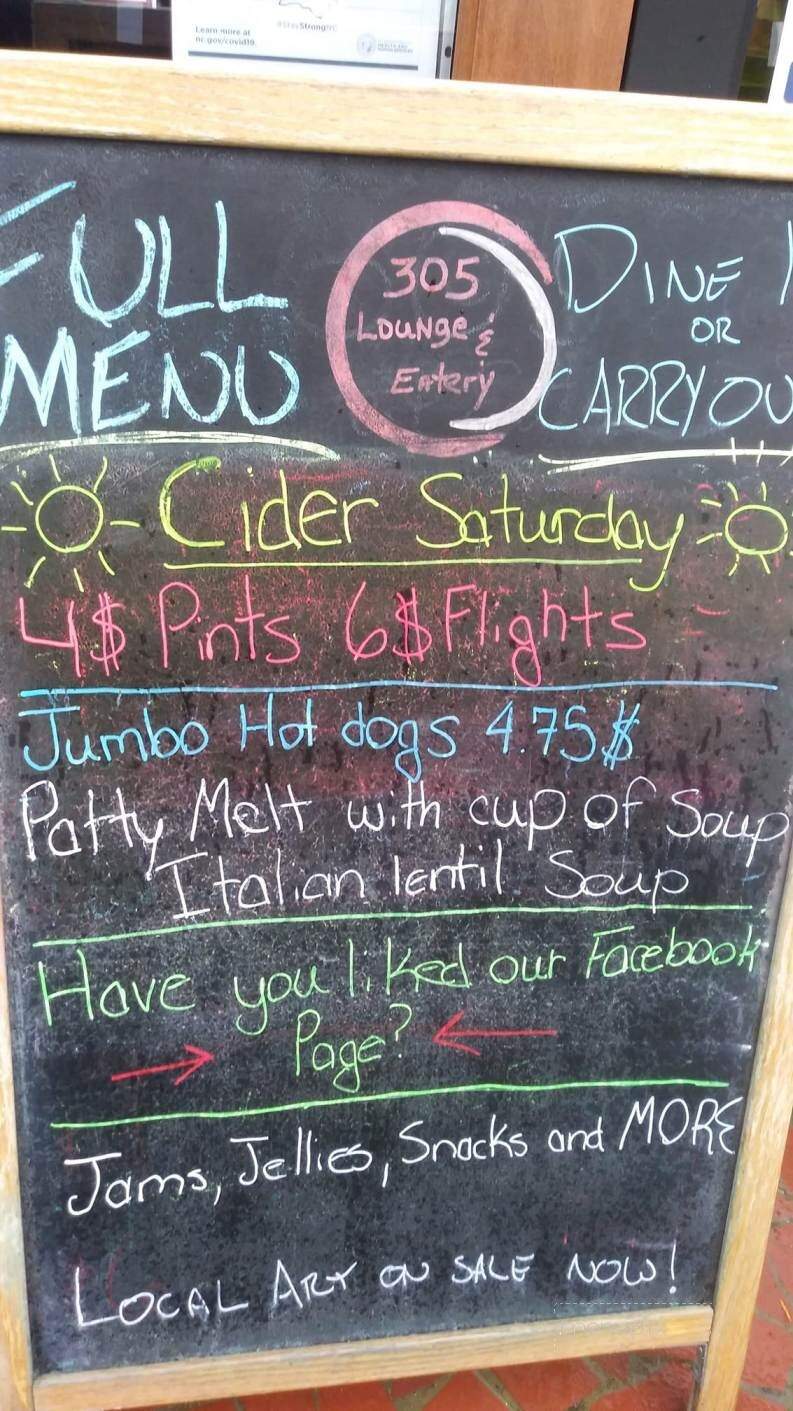 Learn more at
nc.gov/covid19.
#StayStrongNC
FULL
MENU
305
Lounge &
Eatery
DINE I
OR
CARRYOU
Cider Saturday
4$ Pints 6$ Flights
Jumbo Hot dogs 4.75$
Patty Melt with cup of Soup
Italian lentil Soup
Have you liked our Facebook
Page?
Jams, Jellies, Snacks and MORE
LOCAL ART ON SALE NOW!